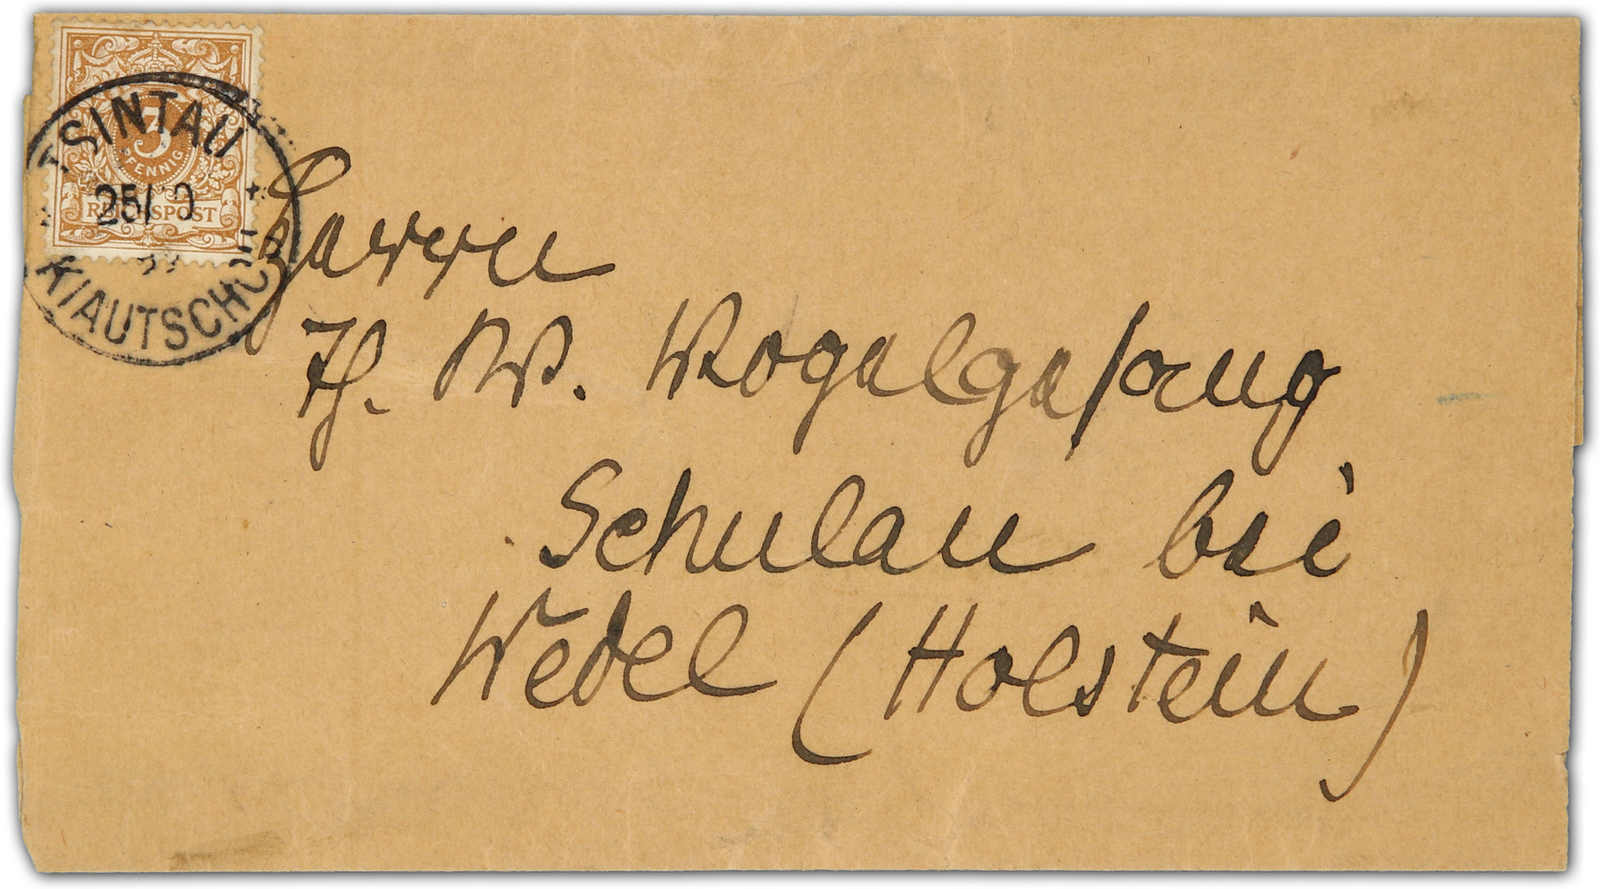 3
PFENNIG
REICHSPOST
TSINTAU
25/
KIAUTSCHOU
Herrn
Th. W. Vogelgesang
Schulau bei
Wedel (Holstein)